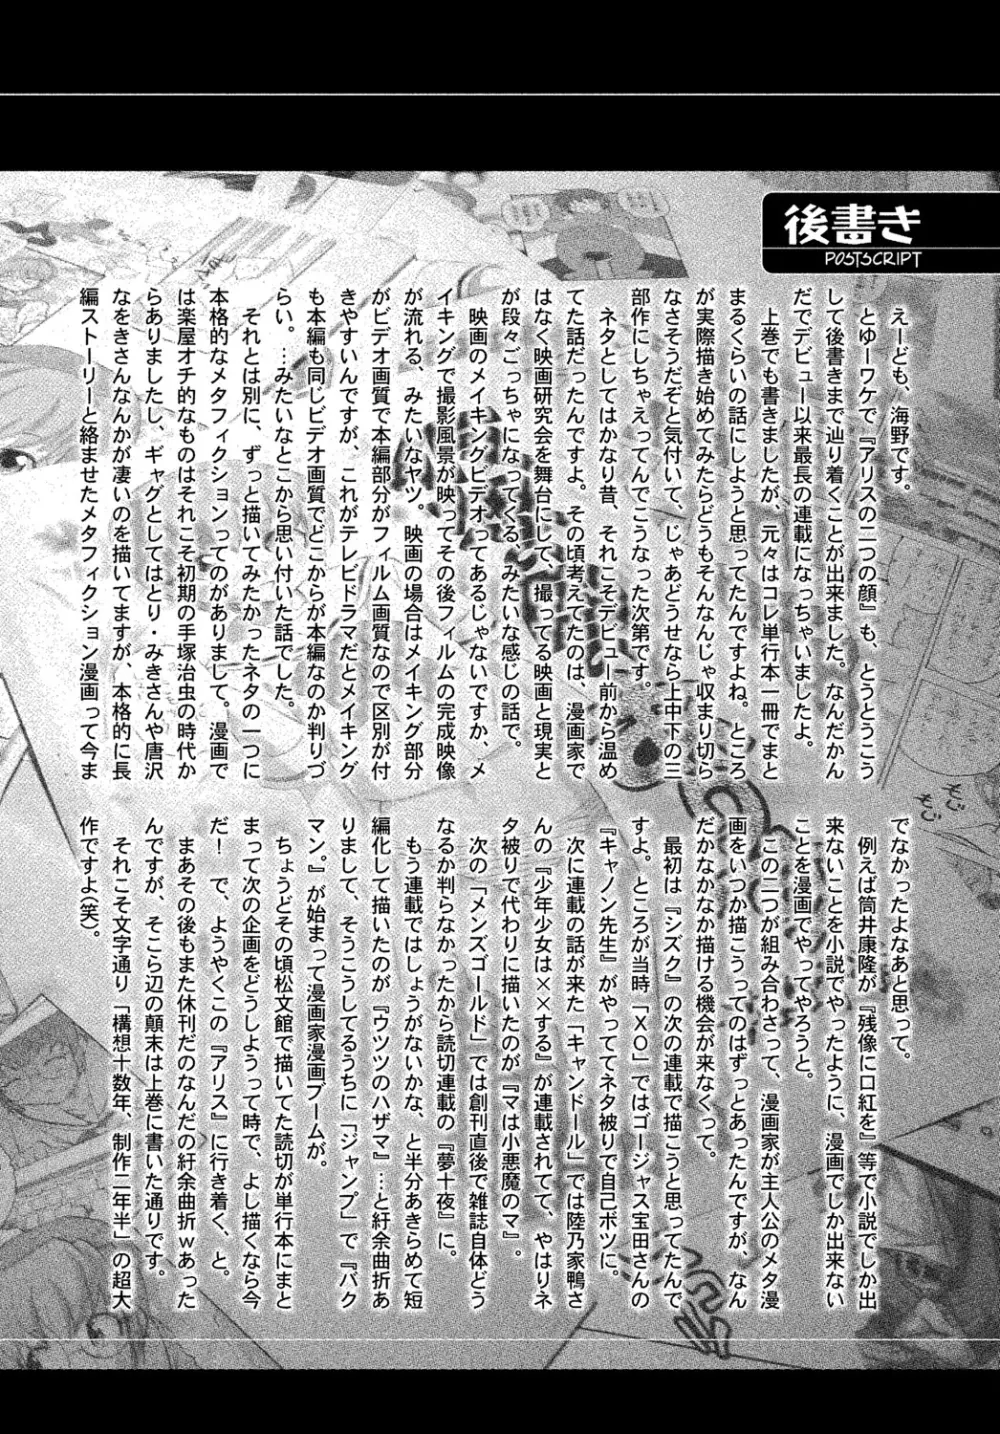 後書き
POSTSCRIPT
えーども、海野です。
とゆーワケで『アリスの二つの顔』も、とうとうこう
して後書きまで辿り着くことが出来ました。なんだかん
だでデビュー以来最長の連載になっちゃいましたよ。
上巻でも書きましたが、元々はコレ単行本一冊でまと
まるくらいの話にしようと思ってたんですよね。ところ
が実際描き始めてみたらどうもそんなんじゃ収まり切ら
なさそうだぞと気付いて、じゃあどうせなら上中下の三
部作にしちゃえってんでこうなった次第です。
ネタとしてはかなり昔、それこそデビュー前から温め
てた話だったんですよ。その頃考えてたのは、漫画家で
はなく映画研究会を舞台にして、撮ってる映画と現実と
が段々ごっちゃになってくる、みたいな感じの話で。
映画のメイキングビデオってあるじゃないですか、メ
イキングで撮影風景が映ってその後フィルムの完成映像
が流れる、みたいなヤツ。映画の場合はメイキング部分
がビデオ画質で本編部分がフィルム画質なので区別が付
きやすいんですが、これがテレビドラマだとメイキング
も本編も同じビデオ画質でどこからが本編なのか判りづ
らい。…みたいなとこから思い付いた話でした。
それとは別に、ずっと描いてみたかったネタの一つに
本格的なメタフィクションってのがありまして。漫画で
は楽屋オチ的なものはそれこそ初期の手塚治虫の時代か
らありましたし、ギャグとしてはとり・みきさんや唐沢
なをきさんなんかが凄いのを描いてますが、本格的に長
編ストーリーと絡ませたメタフィクション漫画って今ま
でなかったよなあと思って。
例えば筒井康隆が『残像に口紅を』等で小説でしか出
来ないことを小説でやったように、漫画でしか出来ない
ことを漫画でやってやろうと。
この二つが組み合わさって、漫画家が主人公のメタ漫
画をいつか描こうってのはずっとあったんですが、なん
だかなかなか描ける機会が来なくって。
最初は『シズク』の次の連載で描こうと思ってたんで
すよ。ところが当時「XO」ではゴージャス宝田さんの
『キャノン先生』がやっててネタ被りで自己ボツに。
次に連載の話が来た「キャンドール」では陸乃家鴨さ
んの『少年少女は××する』が連載されてて、やはりネ
タ被りで代わりに描いたのが『マは小悪魔のマ』。
次の「メンズゴールド」では創刊直後で雑誌自体どう
なるか判らなかったから読切連載の『夢十夜』に。
もう連載ではしょうがないかな、と半分あきらめて短
編化して描いたのが『ウツツのハザマ』…と紆余曲折あ
りまして、そうこうしてるうちに「ジャンプ」で『バク
マン。』が始まって漫画家漫画ブームが。
ちょうどその頃松文館で描いてた読切が単行本にまと
まって次の企画をどうしようって時で、よし描くなら今
だ！で、ようやくこの『アリス』に行き着く、と。
まあその後もまた休刊だのなんだの紆余曲折ｗあった
んですが、そこら辺の顛末は上巻に書いた通りです。
それこそ文字通り「構想十数年、制作二年半」の超大
作ですよ（笑）。